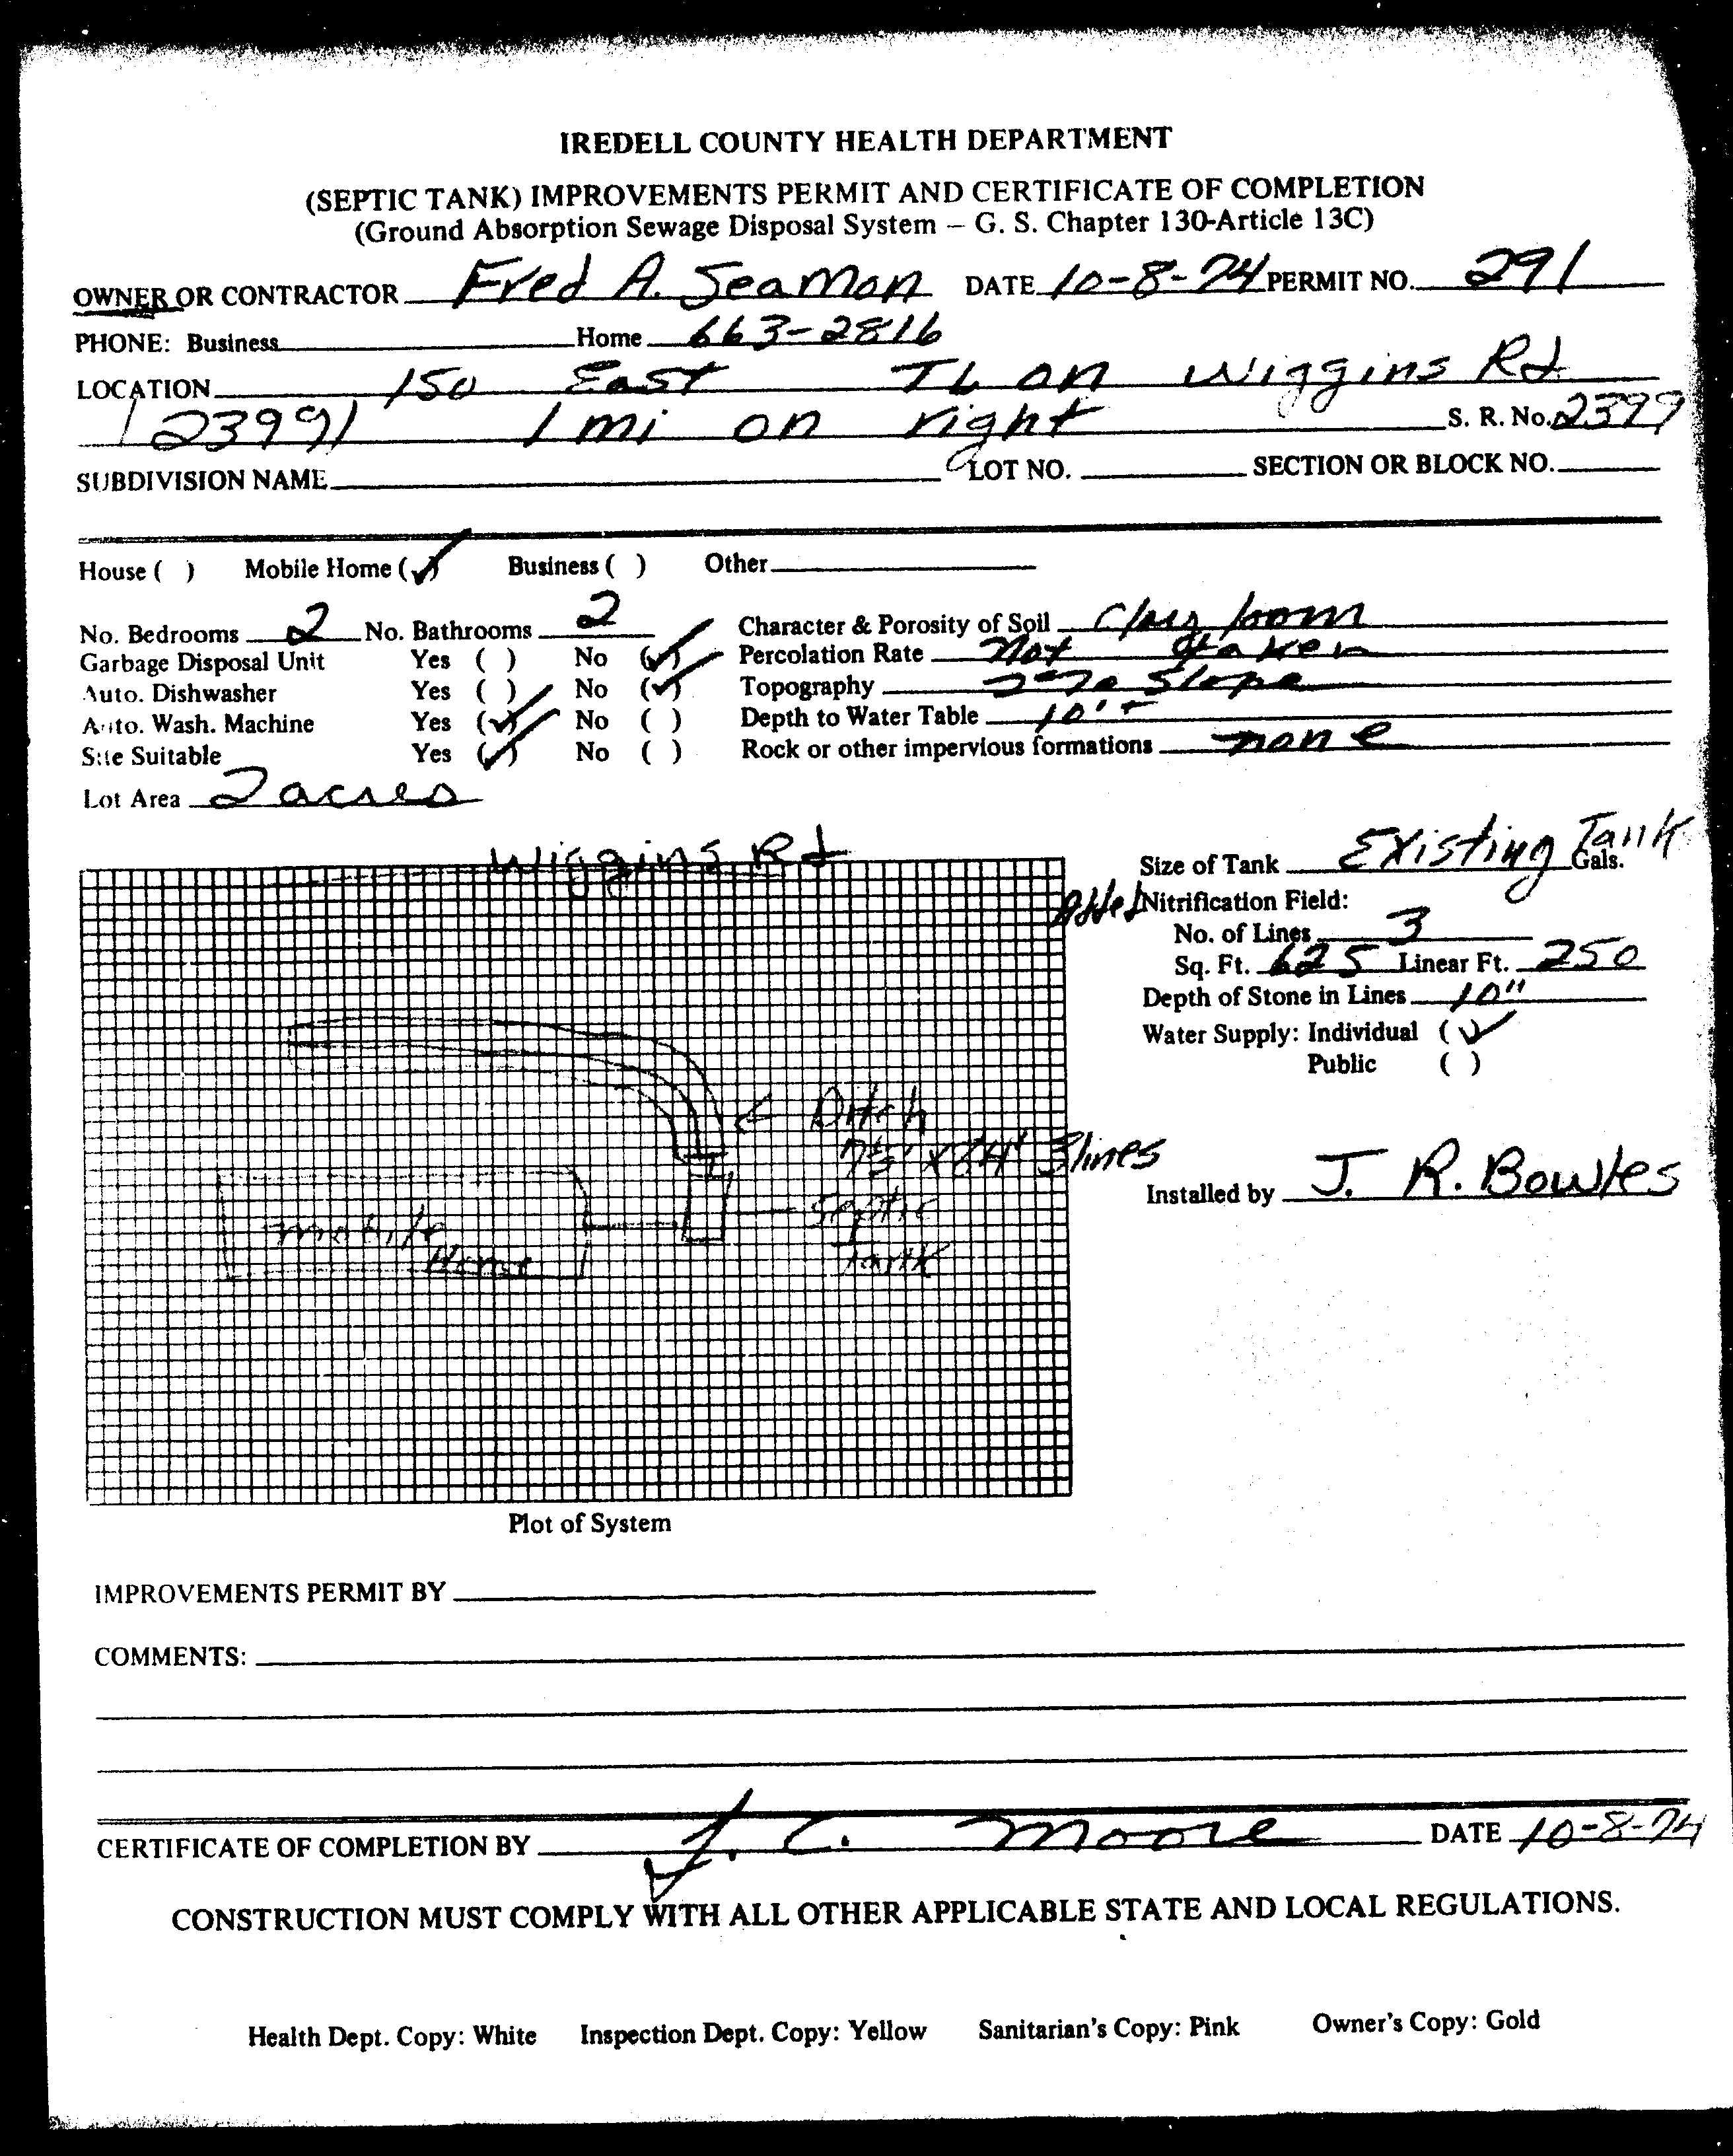 IREDELL COUNTY HEALTH DEPARTMENT
(SEPTIC TANK) IMPROVEMENTS PERMIT AND CERTIFICATE OF COMPLETION
(Ground Absorption Sewage Disposal System – G. S. Chapter 130-Article 13C)
OWNER OR CONTRACTOR Fred A. Seamon DATE 10-8-74 PERMIT NO. 291
PHONE: Business Home 663-2816
LOCATION 150 East TL on Wiggins Rd
(2399) 1 mi on right S. R. No. 2399
SUBDIVISION NAME LOT NO. SECTION OR BLOCK NO.
House ( ) Mobile Home (✓) Business ( ) Other
No. Bedrooms 2 No. Bathrooms 2 Character & Porosity of Soil Clay loam
Garbage Disposal Unit Yes ( ) No (✓) Percolation Rate Not taken
Auto. Dishwasher Yes ( ) No (✓) Topography Slope
Auto. Wash. Machine Yes (✓) No ( ) Depth to Water Table 10'+
Site Suitable Yes (✓) No ( ) Rock or other impervious formations none
Lot Area 2 acres
Wiggins Rd
Size of Tank Existing Tank Gals.
Added Nitrification Field:
No. of Lines 3
Sq. Ft. 625 Linear Ft. 250
Depth of Stone in Lines 10"
Water Supply: Individual (✓)
Public ( )
Ditch
3 lines
Installed by J. R. Bowles
Septic
Tank
mobile
Home
Plot of System
IMPROVEMENTS PERMIT BY
COMMENTS:
CERTIFICATE OF COMPLETION BY J. C. Moore DATE 10-8-74
CONSTRUCTION MUST COMPLY WITH ALL OTHER APPLICABLE STATE AND LOCAL REGULATIONS.
Health Dept. Copy: White Inspection Dept. Copy: Yellow Sanitarian's Copy: Pink Owner's Copy: Gold